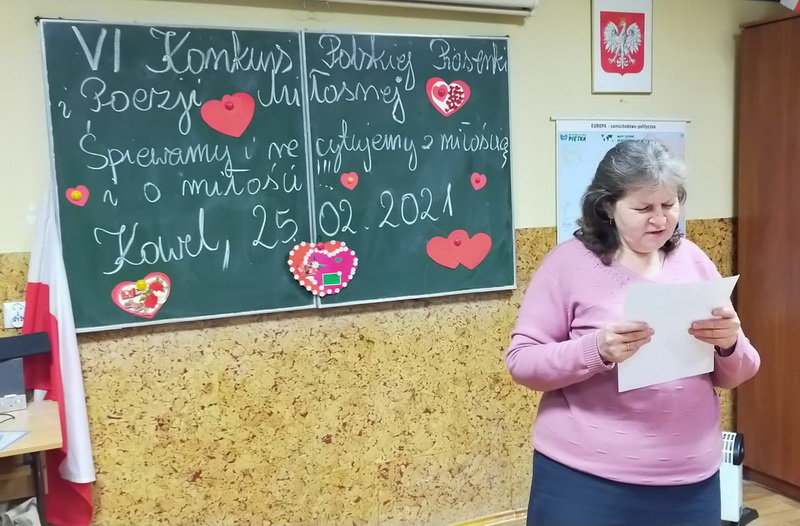 VI Konkurs Polskiej Piosenki
i Poezji Miłosnej
Śpiewamy i recytujemy z miłością
i o miłości !!!
Kowel, 25.02.2021
EUROPA - samochodowo-polityczna
PIĘTKA